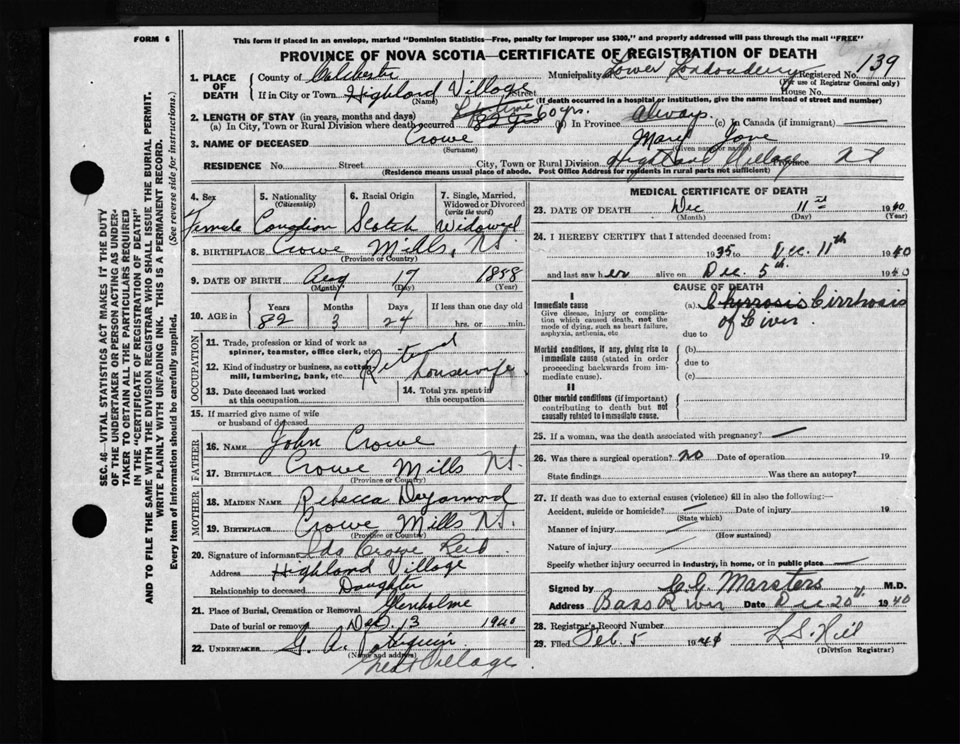 FORM 6
This form if placed in an envelope, marked "Dominion Statistics—Free, penalty for improper use $300," and properly addressed will pass through the mail "FREE"
PROVINCE OF NOVA SCOTIA—CERTIFICATE OF REGISTRATION OF DEATH
139
1. PLACE OF DEATH
County of Colchester Municipality Lower Londonderry Registered No.
(For use of Registrar General only)
If in City or Town Highland Village Street House No.
(Name) (If death occurred in a hospital or institution, give the name instead of street and number)
2. LENGTH OF STAY (in years, months and days)
(a) In City, Town or Rural Division where death occurred 60 yrs. (b) In Province Always (c) In Canada (if immigrant) —
3. NAME OF DECEASED Crowe Mary Jane
(Surname) (Given name or names)
RESIDENCE No. Street City, Town or Rural Division Highland Village Province N.S.
(Residence means usual place of abode. Post Office Address for residents in rural parts not sufficient)
4. Sex
Female
5. Nationality (Citizenship)
Canadian
6. Racial Origin
Scotch
7. Single, Married, Widowed or Divorced (write the word)
Widowed
8. BIRTHPLACE Crowe Mills, N.S.
(Province or Country)
9. DATE OF BIRTH Aug 17 1858
(Month) (Day) (Year)
10. AGE in
Years Months Days If less than one day old
82 3 24 hrs. or min.
OCCUPATION
11. Trade, profession or kind of work as spinner, teamster, office clerk, etc. Retired
12. Kind of industry or business, as cotton mill, lumbering, bank, etc. housewife
13. Date deceased last worked at this occupation
14. Total yrs. spent in this occupation
15. If married give name of wife or husband of deceased
FATHER
16. NAME John Crowe
17. BIRTHPLACE Crowe Mills N.S.
(Province or Country)
MOTHER
18. MAIDEN NAME Rebecca Deyarmond
19. BIRTHPLACE Crowe Mills N.S.
(Province or Country)
20. Signature of informant Ida Crowe Reid
Address Highland Village
Relationship to deceased Daughter
21. Place of Burial, Cremation or Removal Glenholme
Date of burial or removal Dec. 13 1940
22. UNDERTAKER G. A.
(Name and address)
Great Village
MEDICAL CERTIFICATE OF DEATH
23. DATE OF DEATH Dec 11th 1940
(Month) (Day) (Year)
24. I HEREBY CERTIFY that I attended deceased from:
1935 to Dec. 11th 1940
and last saw her alive on Dec. 5th 1940
CAUSE OF DEATH
I
Immediate cause
Give disease, injury or complication which caused death, not the mode of dying, such as heart failure, asphyxia, asthenia, etc
(a) Cirrhosis
of Liver
due to
Morbid conditions, if any, giving rise to immediate cause (stated in order proceeding backwards from immediate cause).
(b)
due to
(c)
II
Other morbid conditions (if important) contributing to death but not causally related to immediate cause.
25. If a woman, was the death associated with pregnancy? —
26. Was there a surgical operation? no Date of operation 19
State findings Was there an autopsy?
27. If death was due to external causes (violence) fill in also the following:—
Accident, suicide or homicide? — Date of injury 19
(State which)
Manner of injury
(How sustained)
Nature of injury
Specify whether injury occurred in industry, in home, or in public place —
Signed by Marsters M.D.
Address Bass River Date Dec. 20th 1940
28. Registrar's Record Number
29. Filed Feb. 5 1941 L S. Hill
(Division Registrar)
SEC. 46—VITAL STATISTICS ACT MAKES IT THE DUTY
OF THE UNDERTAKER OR PERSON ACTING AS UNDER-
TAKER TO OBTAIN ALL THE PARTICULARS REQUIRED
IN THE "CERTIFICATE OF REGISTRATION OF DEATH"
AND TO FILE THE SAME WITH THE DIVISION REGISTRAR WHO SHALL ISSUE THE BURIAL PERMIT.
WRITE PLAINLY WITH UNFADING INK. THIS IS A PERMANENT RECORD.
Every item of information should be carefully supplied. (See reverse side for instructions.)